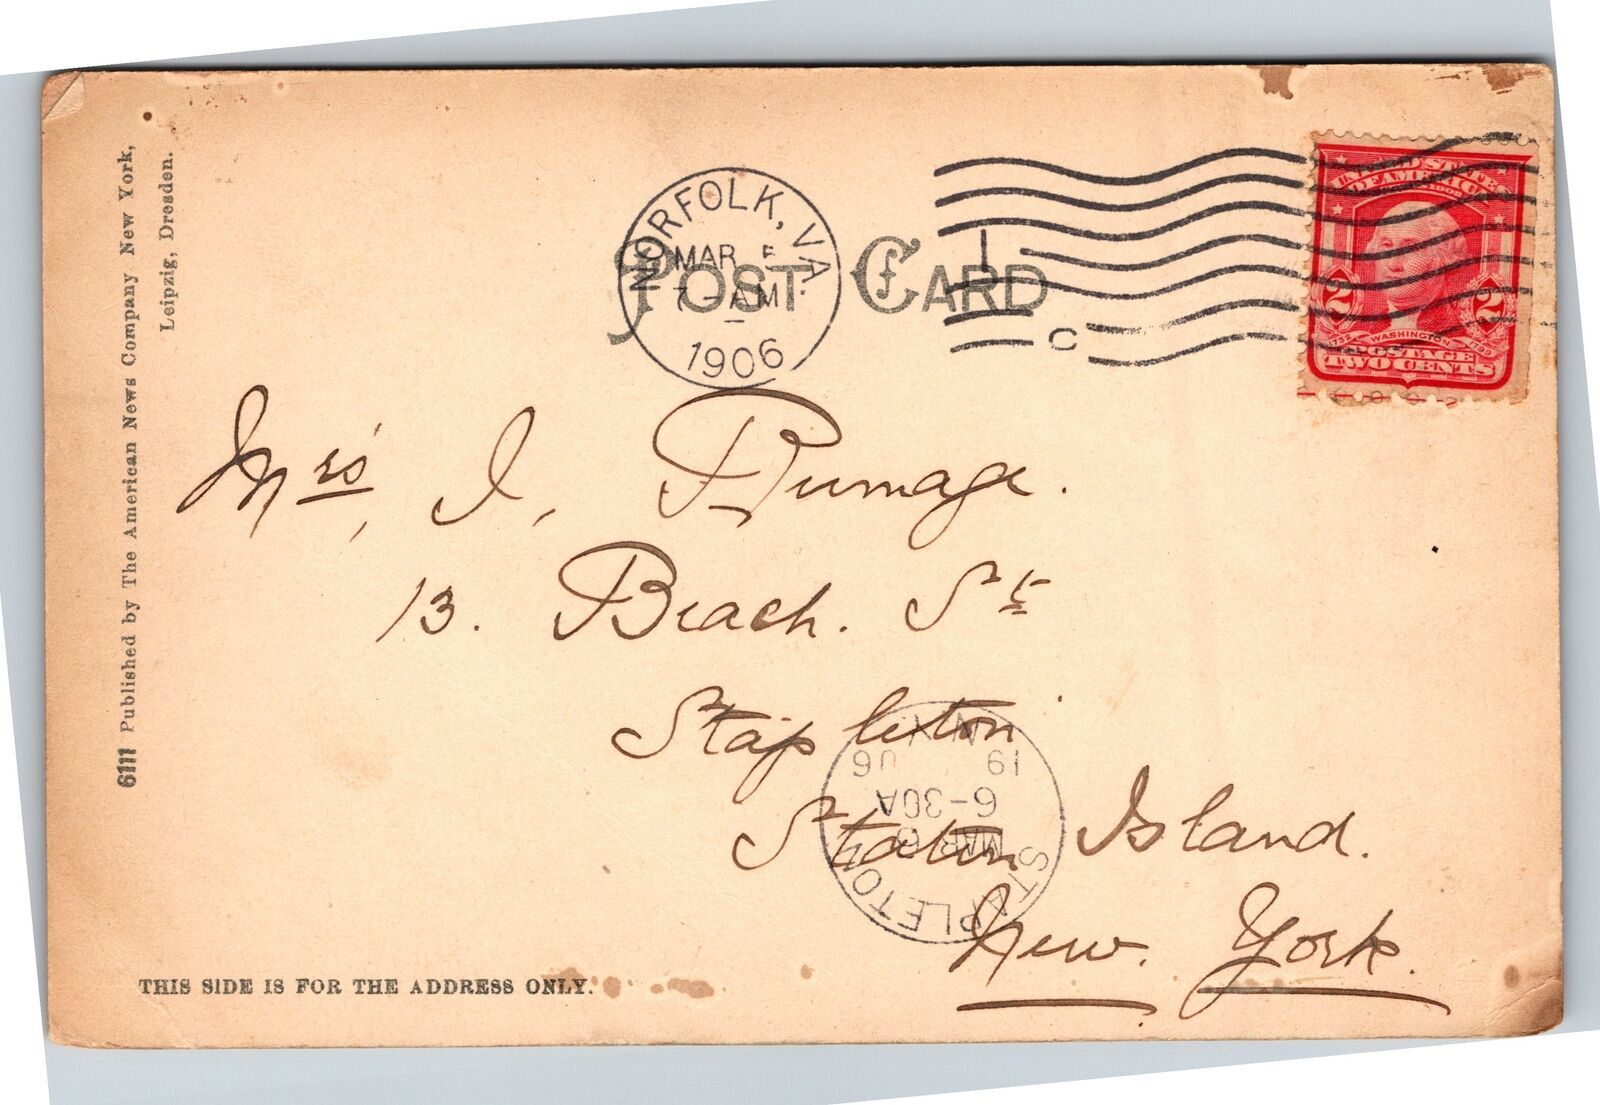 6111 Published by The American News Company New York,
Leipzig, Dresden.
POST CARD
NORFOLK, VA.
MAR 5
7-AM
1906
C
UNITED STATES
OF AMERICA
2 2
1732 WASHINGTON 1799
POSTAGE
TWO CENTS
Mrs. I.
13. Beach. St
Stapleton
Staten Island.
New. York.
STAPLETON
MAR 6
6-30A
19 06
N.Y.
THIS SIDE IS FOR THE ADDRESS ONLY.